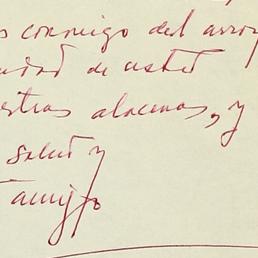 s conmigo del arroy
uidad de usted
estras alacenas, y
salud y
amigo